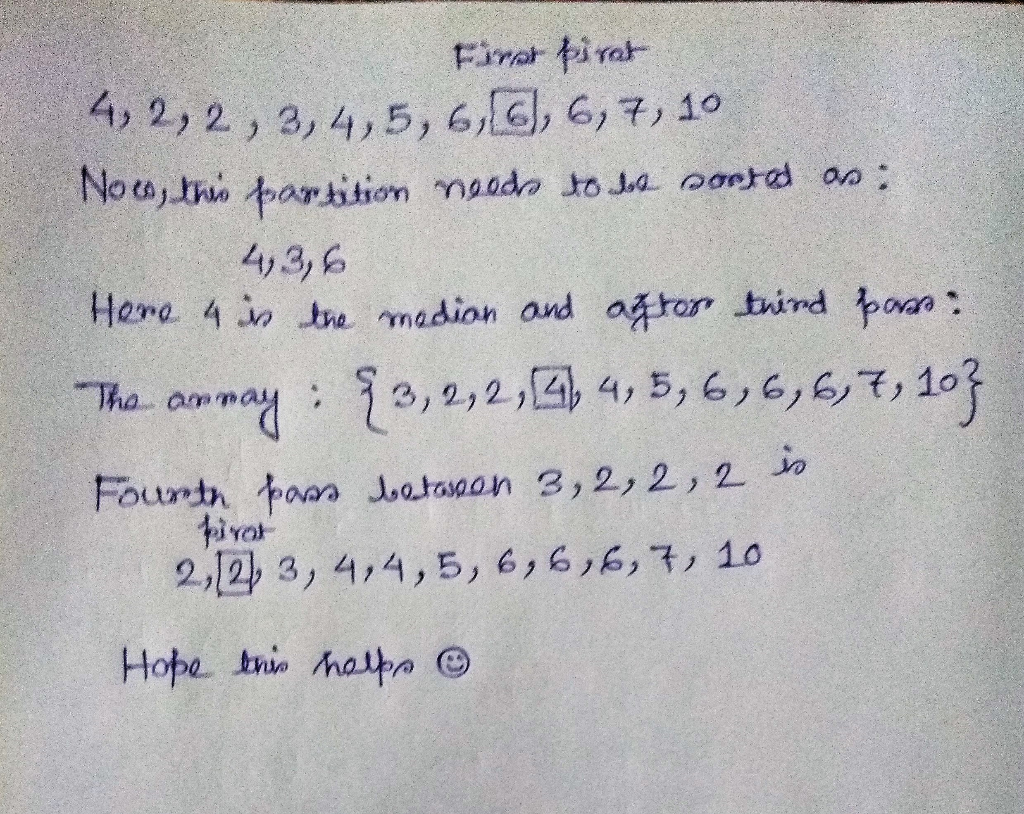 First pivot
4, 2, 2, 3, 4, 5, 6, 6, 6, 7, 10
Now, this partition needs to be sorted as :
4, 3, 6
Here 4 is the median and after third pass :
The array : { 3, 2, 2, 4, 4, 5, 6, 6, 6, 7, 10 }
Fourth pass between 3, 2, 2, 2 is
pivot
2, 2, 3, 4, 4, 5, 6, 6, 6, 7, 10
Hope this helps ☺